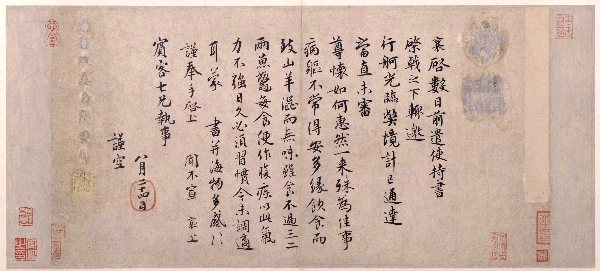 襄啓數日前遣使持書
棨戟之下輒邀
行舸光臨弊境計已通達
當直未審
尊懷如何惠然一來殊為佳事
病軀不常得安多緣飲食而
致山羊澀而無味強食不過三二
兩魚鼇每食便作腹疾以此氣
力不強日久必須習慣今未調適
耳蒙 書并海物多感〻
謹奉手啓上 聞不宣 襄上
賓客七兄執事
謹空
八月廿四日